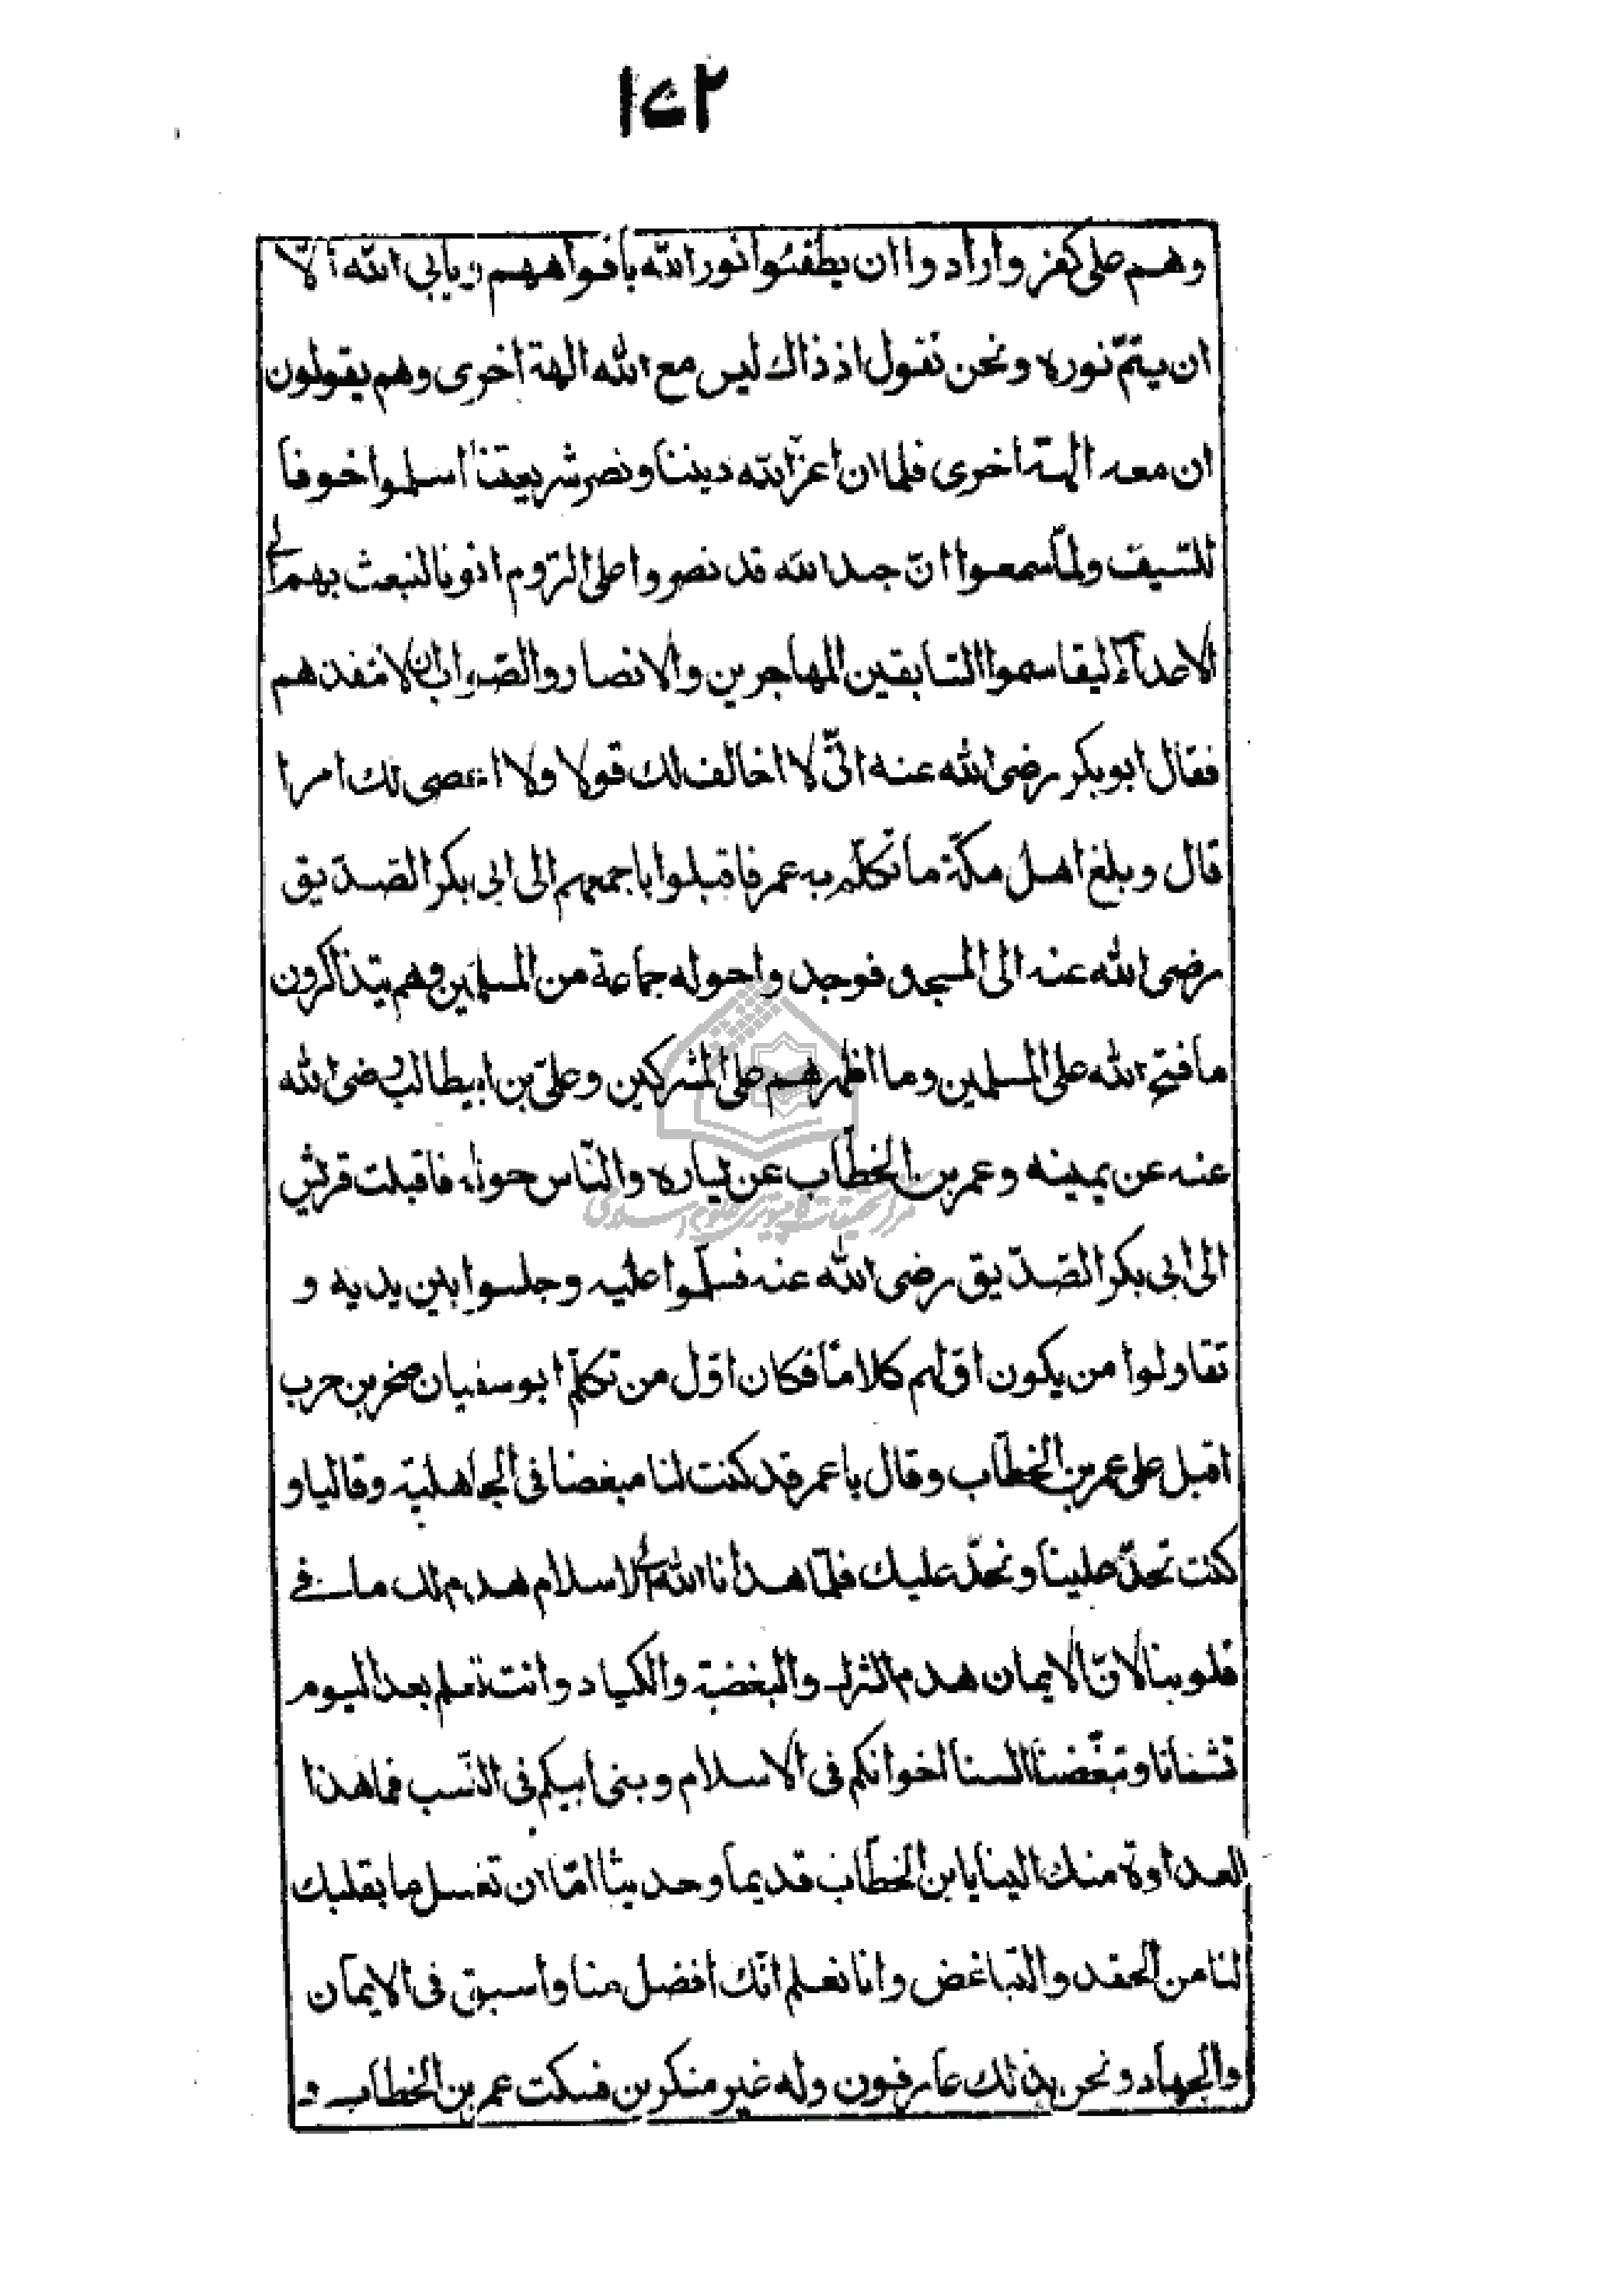 ١٧٢
وهم على كفر وارادوا ان يطفئوا نور الله بافواههم ويابى الله الّا
ان يتمّ نوره ونحن نقول اذ ذاك ليس مع الله الهة اخرى وهم يقولون
ان معه الهة اخرى فلما ان اعزّ الله ديننا ونصر شريعتنا اسلموا خوفا
للسّيف ولمّا سمعوا انّ جند الله قد نصروا على الرّوم اتونا لنبعث بهم الى
الاعدآء ليقاسموا السّابقين المهاجرين والانصار والصّواب ان لا تنفذهم
فقال ابو بكر رضى الله عنه انّى لا اخالف لك قولا ولا اعصى لك امرا
قال وبلغ اهل مكّة ما تكلّم به عمر فاقبلوا باجمعهم الى ابى بكر الصّدّيق
رضى الله عنه الى المسجد فوجدوا حوله جماعة من المسلمين وهم يتذاكرون
ما فتح الله على المسلمين وما اظهرهم على المشركين وعلىّ بن ابيطالب رضى الله
عنه عن يمينه وعمر بن الخطّاب عن يساره والنّاس حوله فاقبلت قريش
الى ابى بكر الصّدّيق رضى الله عنه فسلّموا عليه وجلسوا بين يديه و
تقاولوا من يكون اوّلهم كلاما فكان اوّل من تكلّم ابو سفيان صخر بن حرب
اقبل على عمر بن الخطّاب وقال يا عمر قد كنت لنا مبغضا فى الجاهلية وقاليا و
كنت تحدّ علينا ونحدّ عليك فلمّا هدانا الله الى الاسلام هدم لك ما فى
قلوبنا لانّ الايمان هدم الشرك والبغضة والكياد وانت تعلم بعد اليوم
تشنانا وتبغّضنا السنا اخوانكم فى الاسلام وبنى ابيكم فى النّسب فما هذا
العداوة منك الينا يا بن الخطّاب قديما وحديثا امّا ان تغسل ما بقلبك
لنا من الحقد والتباغض وانا نعلم انّك افضل منا واسبق فى الايمان
والجهاد ونحن بذلك عارفون وله غير منكرين فسكت عمر بن الخطاب و
مركز تحقيقات كامپيوترى علوم اسلامى